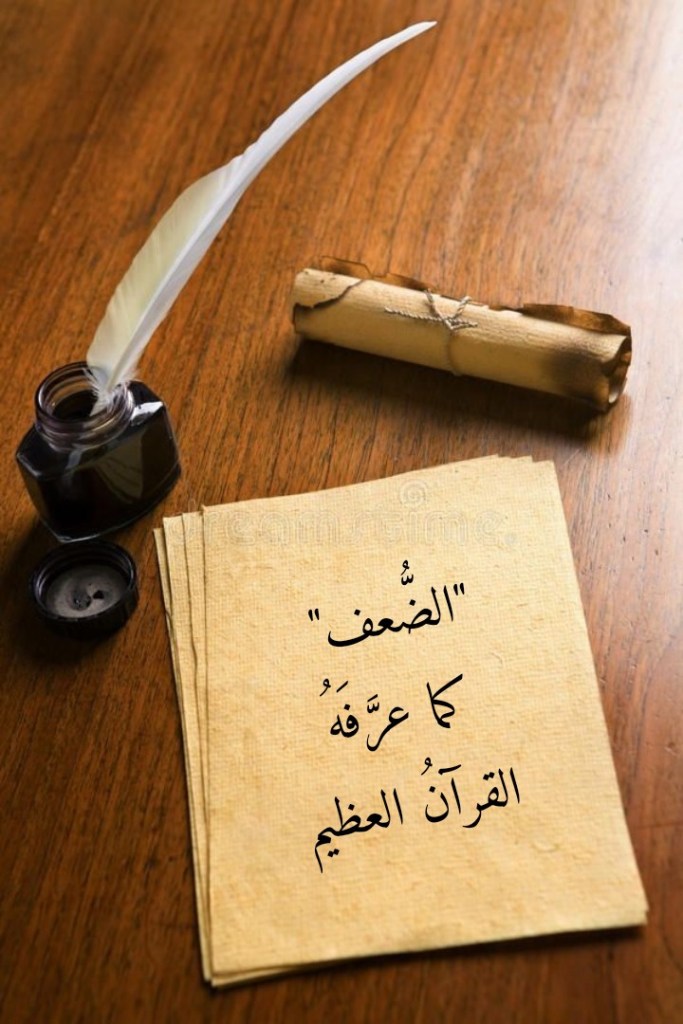 "الضُّعف"
كما عرَّفَهُ
القرآنُ العظيم
dreamstime.